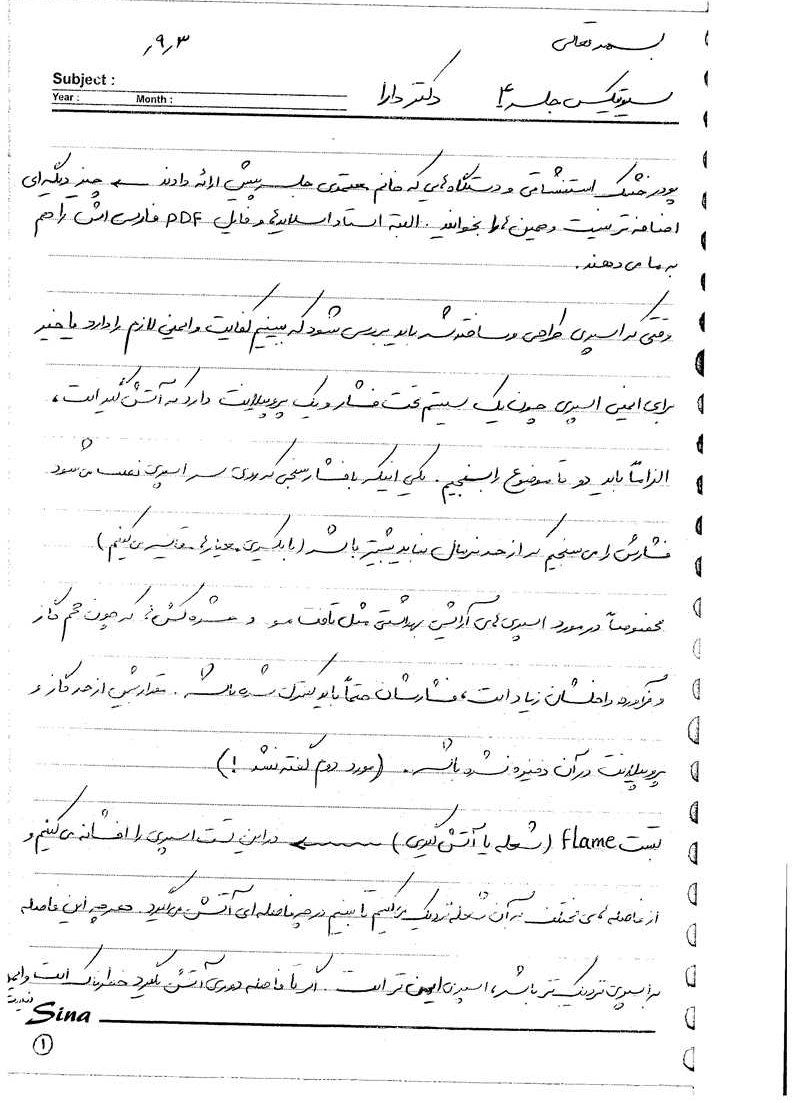 بسمه تعالی
۹٫۳٫
Subject :
Year : Month :
سیوتیکس جلسه ۴ دکتر دارا
پودر خشک استنشاقی و دستگاه‌هایی که خانم معتمدی جلسه پیش ارائه دادند ← چیز دیگه‌ای
اضافه تر نیست و همین ها را بخوانید. البته استاد اسلایدها و فایل PDF فارسی اش را هم
به ما می دهند.
وقتی که اسپری طراحی و ساخته شد باید بررسی شود که ببینیم کفایت و ایمنی لازم را دارد یا خیر
برای ایمنی اسپری چون یک سیستم تحت فشار و یک پروپیلانت دارد که آتش گیر است،
الزاماً باید دو تا موضوع را بسنجیم. یکی اینکه با فشارسنجی که روی سر اسپری نصب می شود
فشارش را می سنجیم که از حد نرمال نباید بیشتر باشد (با یکسری معیارها مقایسه می کنیم)
مخصوصاً در مورد اسپری های آرایشی بهداشتی مثل تافت مو و حشره کش ها که چون حجم گاز
و فرآورده داخلشان زیاد است، فشارشان حتماً باید کنترل شده باشد. مقدار بیش از حد گاز و
پروپیلانت در آن ذخیره نشده باشد. (مورد دوم گفته نشد !)
تست Flame (شعله یا آتش گیری) ← در این تست اسپری را افشانه می کنیم و
از فاصله های مختلف به آن شعله نزدیک می کنیم تا ببینیم در چه فاصله ای آتش می گیرد. هر چه این فاصله
به اسپری نزدیک تر باشد، اسپری ایمن تر است. اگر تا فاصله دوری آتش بگیرد خطرناک است و ایمن
نیست
Sina
۱